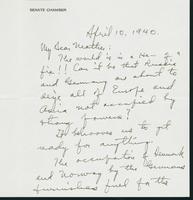 SENATE CHAMBER
April 10, 1940.
My Dear Mother:
The world is in a
! Can it be that Russia
and Germany are about to
seize all of Europe and
Asia not occupied by
strong powers?
It behooves us to get
ready for anything.
The occupation of Denmark
and Norway by the Germans
furnishes fuel for the